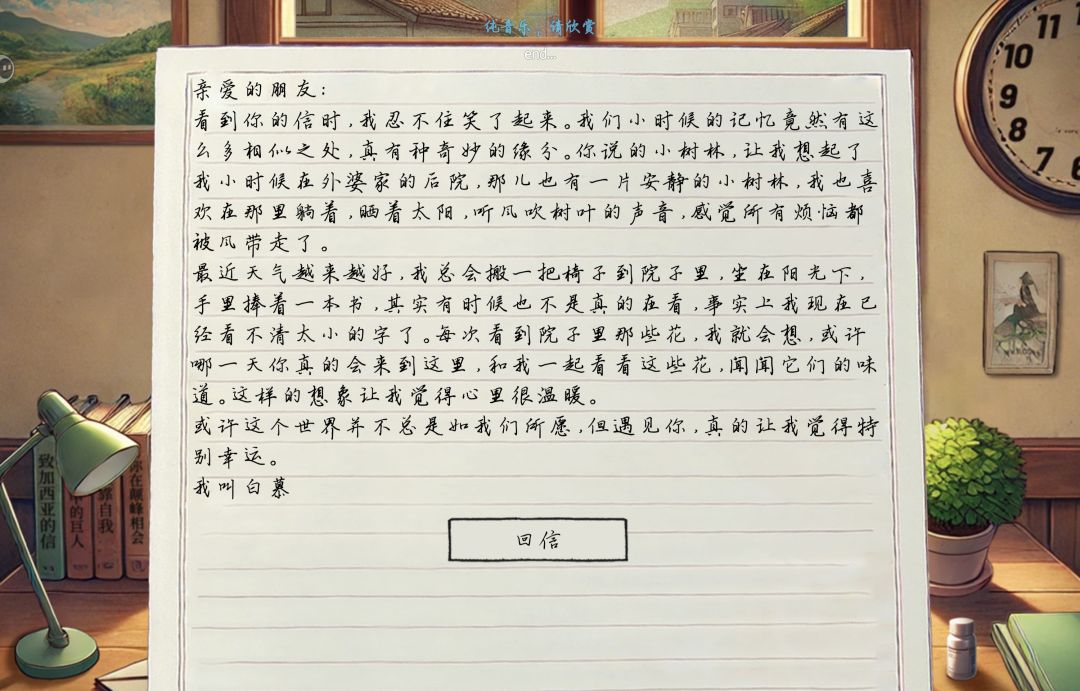 纯音乐，请欣赏
end...
亲爱的朋友：
看到你的信时,我忍不住笑了起来。我们小时候的记忆竟然有这
么多相似之处,真有种奇妙的缘分。你说的小树林,让我想起了
我小时候在外婆家的后院,那儿也有一片安静的小树林,我也喜
欢在那里躺着,晒着太阳,听风吹树叶的声音,感觉所有烦恼都
被风带走了。
最近天气越来越好,我总会搬一把椅子到院子里,坐在阳光下,
手里捧着一本书,其实有时候也不是真的在看,事实上我现在已
经看不清太小的字了。每次看到院子里那些花,我就会想,或许
哪一天你真的会来到这里,和我一起看看这些花,闻闻它们的味
道。这样的想象让我觉得心里很温暖。
或许这个世界并不总是如我们所愿,但遇见你,真的让我觉得特
别幸运。
我叫白慕
回信
11
10
9
8
7
6
致加西亚的信
的巨人
靠自我
你在巅峰相会